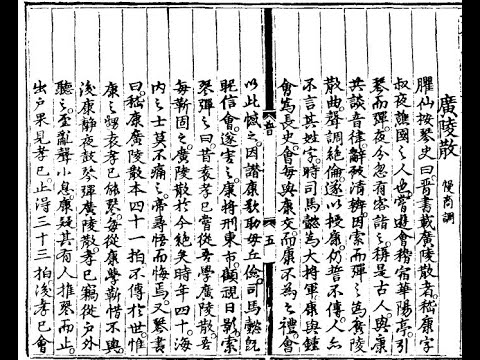 廣陵散 慢商調
臞仙按琴史曰晉書載廣陵散者嵇康字
叔夜譙國之人也嘗遊會稽宿華陽亭引
琴而彈夜分忽有客詣之稱是古人與康
共談音律辭致清辨因索而彈之為廣陵
散曲聲調絕倫遂以授康仍誓不傳人亦
不言其姓字時司馬懿為大將軍康與鍾
會為長史會每與康交而康不為之禮會
以此憾之因譖康欲助毋丘儉司馬懿既
昵信會遂害之康將刑東市顧視日影索
琴彈之曰昔袁孝已嘗從吾學廣陵散吾
每靳固之廣陵散於今絕矣時年四十海
內之士莫不痛之帝尋悟而悔焉又琴書
曰嵇康廣陵散本四十一拍不傳於世惟
康之甥袁孝已能琴每從康學靳惜不與
後康靜夜鼓琴彈廣陵散孝已竊從戶外
聽之至亂聲小息康疑其有人推琴而止
出戶果見孝已止得三十三拍後孝已會
五